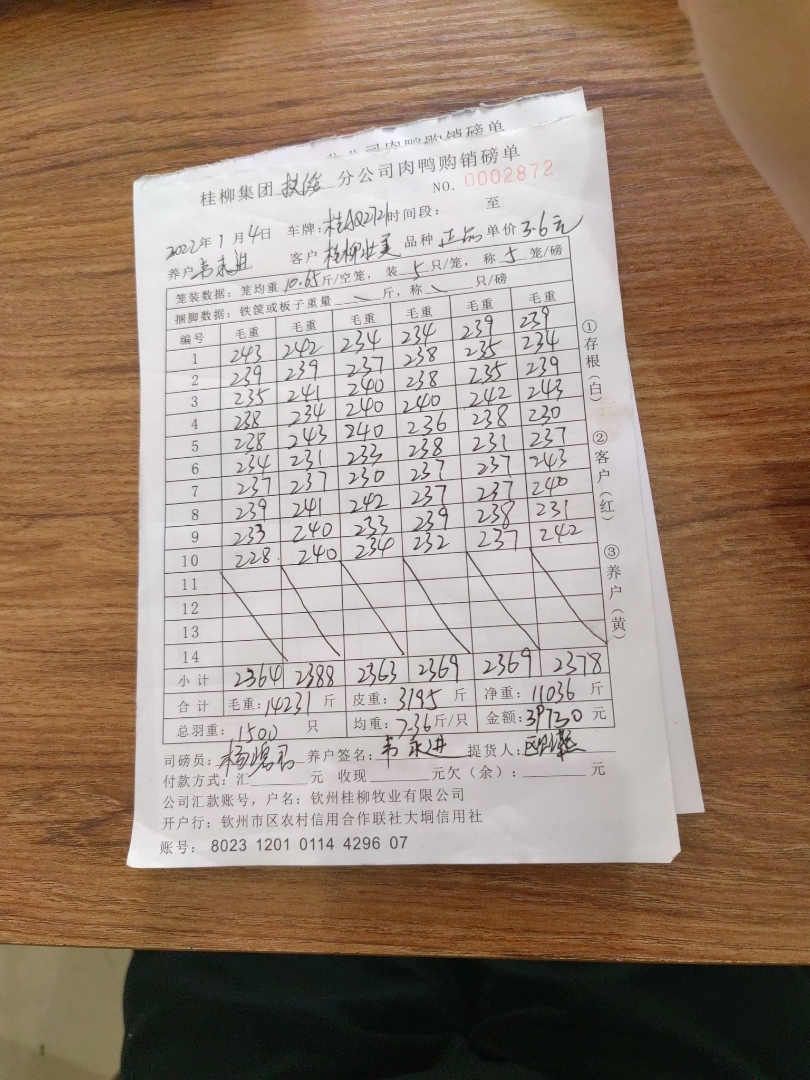 公司肉鸭购销磅单
桂柳集团 钦冷 分公司肉鸭购销磅单
NO. 0002872
2022年1月4日 车牌:桂AQ2721时间段: 至
养户 韦永进 客户 桂柳壮美 品种 正品 单价 3.6元
笼装数据:笼均重 10.65斤/空笼,装 5 只/笼,称 5 笼/磅
捆脚数据:铁筐或板子重量 \ 斤,称 \ 只/磅
编号 毛重 毛重 毛重 毛重 毛重 毛重
1 243 242 234 234 239 239
2 239 239 237 238 235 234
3 235 241 240 238 235 239
4 238 234 240 240 242 243
5 238 243 240 236 238 230
6 234 231 233 238 231 237
7 237 237 230 237 237 243
8 239 241 242 237 237 240
9 233 240 233 239 238 231
10 228 240 234 232 237 242
11
12
13
14
小计 2364 2388 2363 2369 2369 2378
合计 毛重:14231 斤 皮重:3195 斤 净重:11036 斤
总羽重:1500 只 均重:7.36斤/只 金额:39730 元
司磅员: 养户签名:韦永进 提货人:
付款方式:汇 元 收现 元欠(余): 元
公司汇款账号,户名:钦州桂柳牧业有限公司
开户行:钦州市区农村信用合作联社大垌信用社
账号: 8023 1201 0114 4296 07
①存根(白) ②客户(红) ③养户(黄)